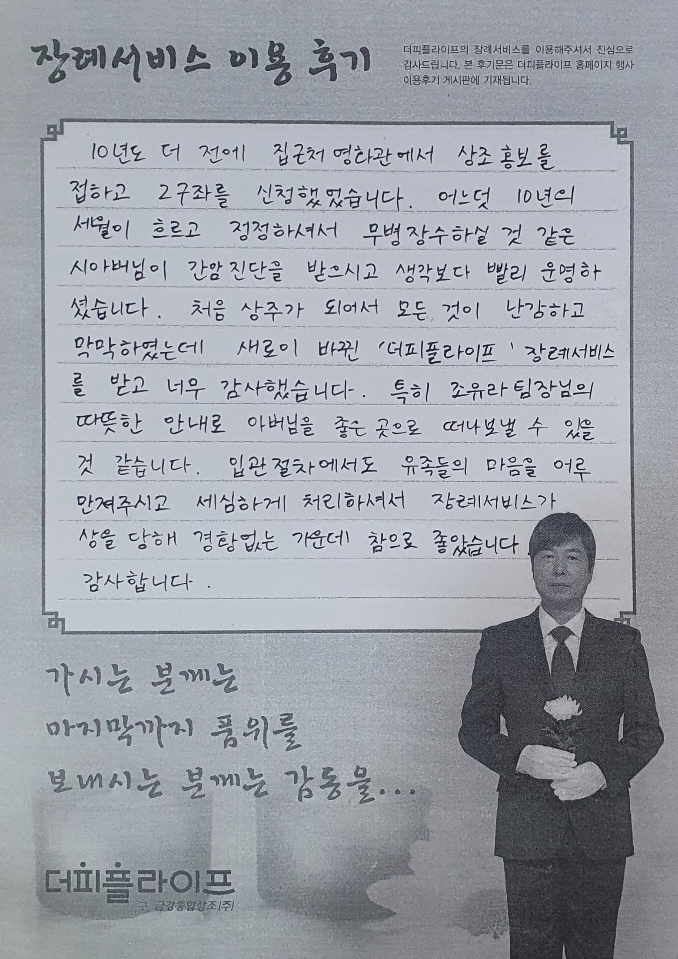 장례서비스 이용 후기
더피플라이프의 장례서비스를 이용해주셔서 진심으로
감사드립니다. 본 후기문은 더피플라이프 홈페이지 행사
이용후기 게시판에 기재됩니다.
10년도 더 전에 집근처 영화관에서 상조 홍보를
접하고 2구좌를 신청했었습니다. 어느덧 10년의
세월이 흐르고 정정하셔서 무병장수하실 것 같은
시아버님이 간암진단을 받으시고 생각보다 빨리 운명하
셨습니다. 처음 상주가 되어서 모든 것이 난감하고
막막하였는데 새로이 바뀐 '더피플라이프' 장례서비스
를 받고 너무 감사했습니다. 특히 조유라팀장님의
따뜻한 안내로 아버님을 좋은곳으로 떠나보낼 수 있을
것 같습니다. 입관절차에서도 유족들의 마음을 어루
만져주시고 세심하게 처리하셔서 장례서비스가
상을 당해 경황없는 가운데 참으로 좋았습니다
감사합니다.
가시는 분께는
마지막까지 품위를
보내시는 분께는 감동을...
더피플라이프
구. 금강종합상조(주)